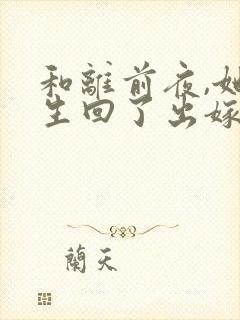 和離前夜,她
生回了出嫁
蘭天